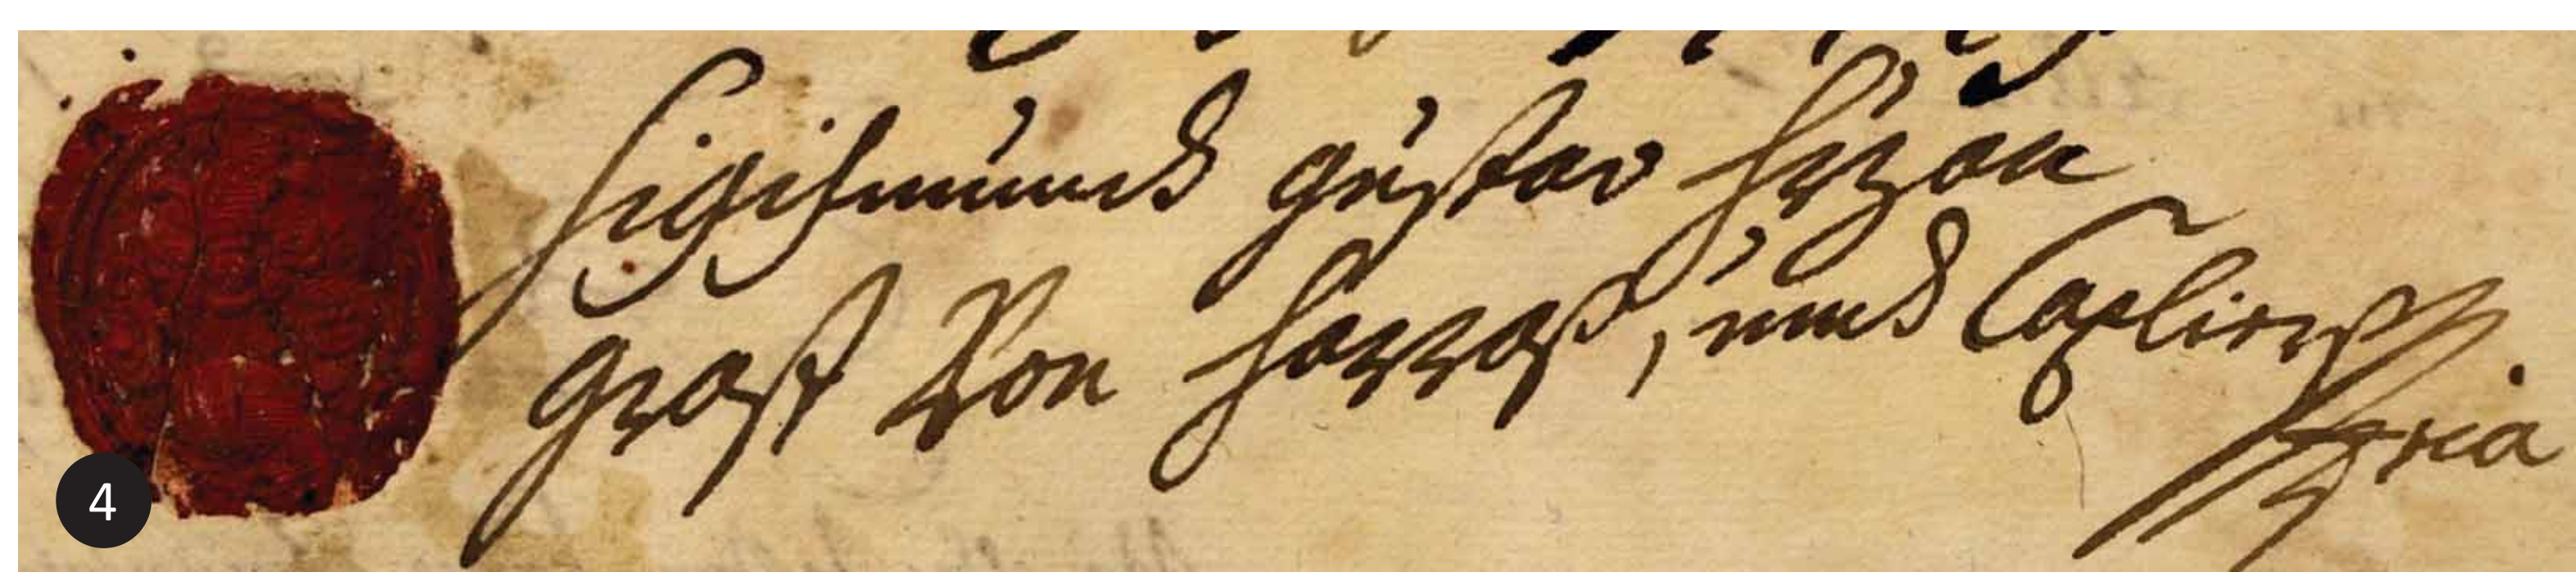 Sigismund gustav Hrzan
graff Von Harraß, und
mpria
4